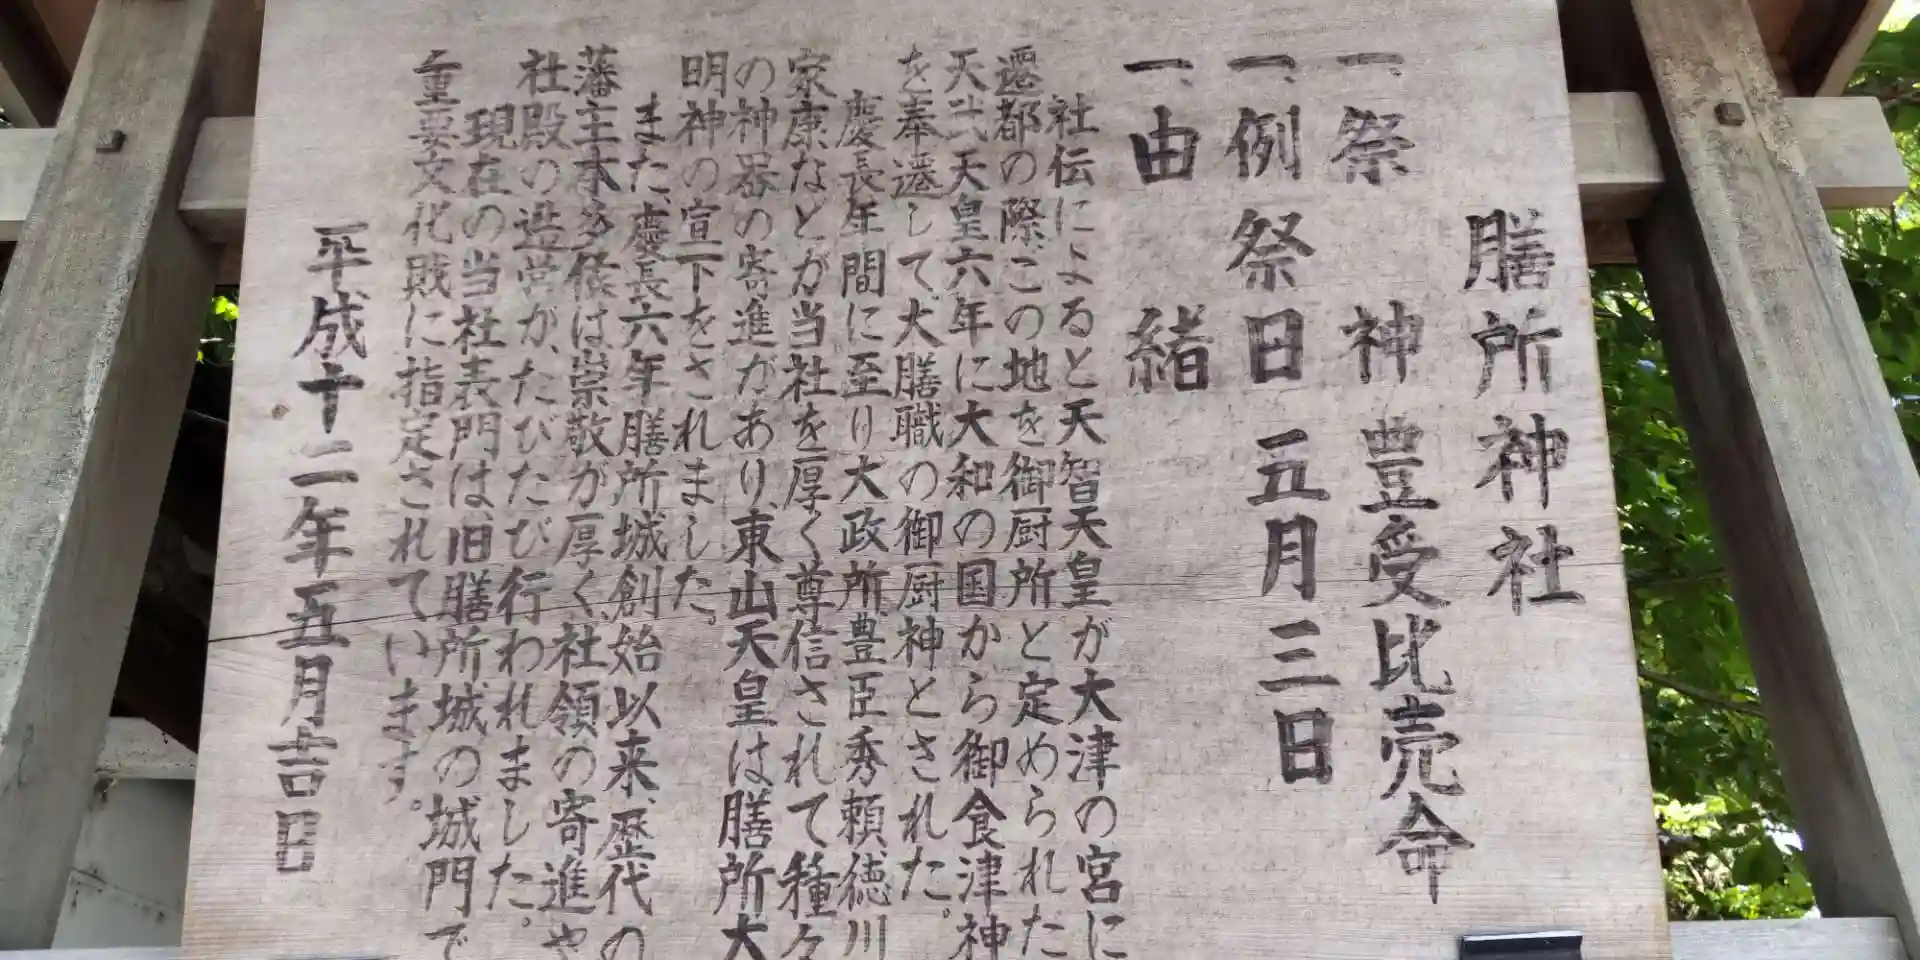 膳所神社
一、祭神 豊受比売命
一、例祭日 五月三日
一、由緒
社伝によると天智天皇が大津の宮に
遷都の際、この地を御厨所と定められた
天武天皇六年に大和の国から御食津神
を奉遷して大膳職の御厨神とされた。
慶長年間に至り大政所、豊臣秀頼、徳川
家康などが当社を厚く尊信されて種々
の神器の寄進があり、東山天皇は膳所大
明神の宣下をされました。
また、慶長六年膳所城創始以来、歴代の
藩主本多候は崇敬が厚く社領の寄進や
社殿の造営が、たびたび行われました。
現在の当社表門は、旧膳所城の城門で
重要文化財に指定されています。
平成十二年五月吉日